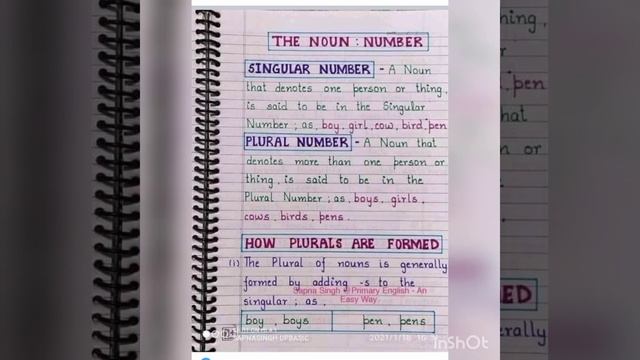 THE NOUN : NUMBER
SINGULAR NUMBER - A Noun
that denotes one person or thing,
is said to be in the Singular
Number ; as, boy, girl, cow, bird, pen
PLURAL NUMBER - A Noun that
denotes more than one person or
thing, is said to be in the
Plural Number ; as, boys, girls,
cows, birds, pens.
HOW PLURALS ARE FORMED
(i) The Plural of nouns is generally
formed by adding -s to the
Sapna Singh Primary English - An
Easy Way
singular ; as,
boy, boys pen, pens
SAPNASINGH UPBASIC
2021/1/18
InShOt
thing,
pen
hat
n or
ED
erally